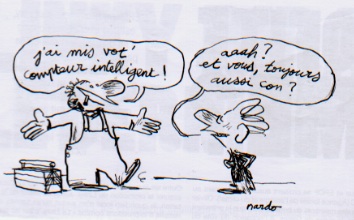 j'ai mis vot'
compteur intelligent !
aaah ?
et vous, toujours
aussi con ?
nardo